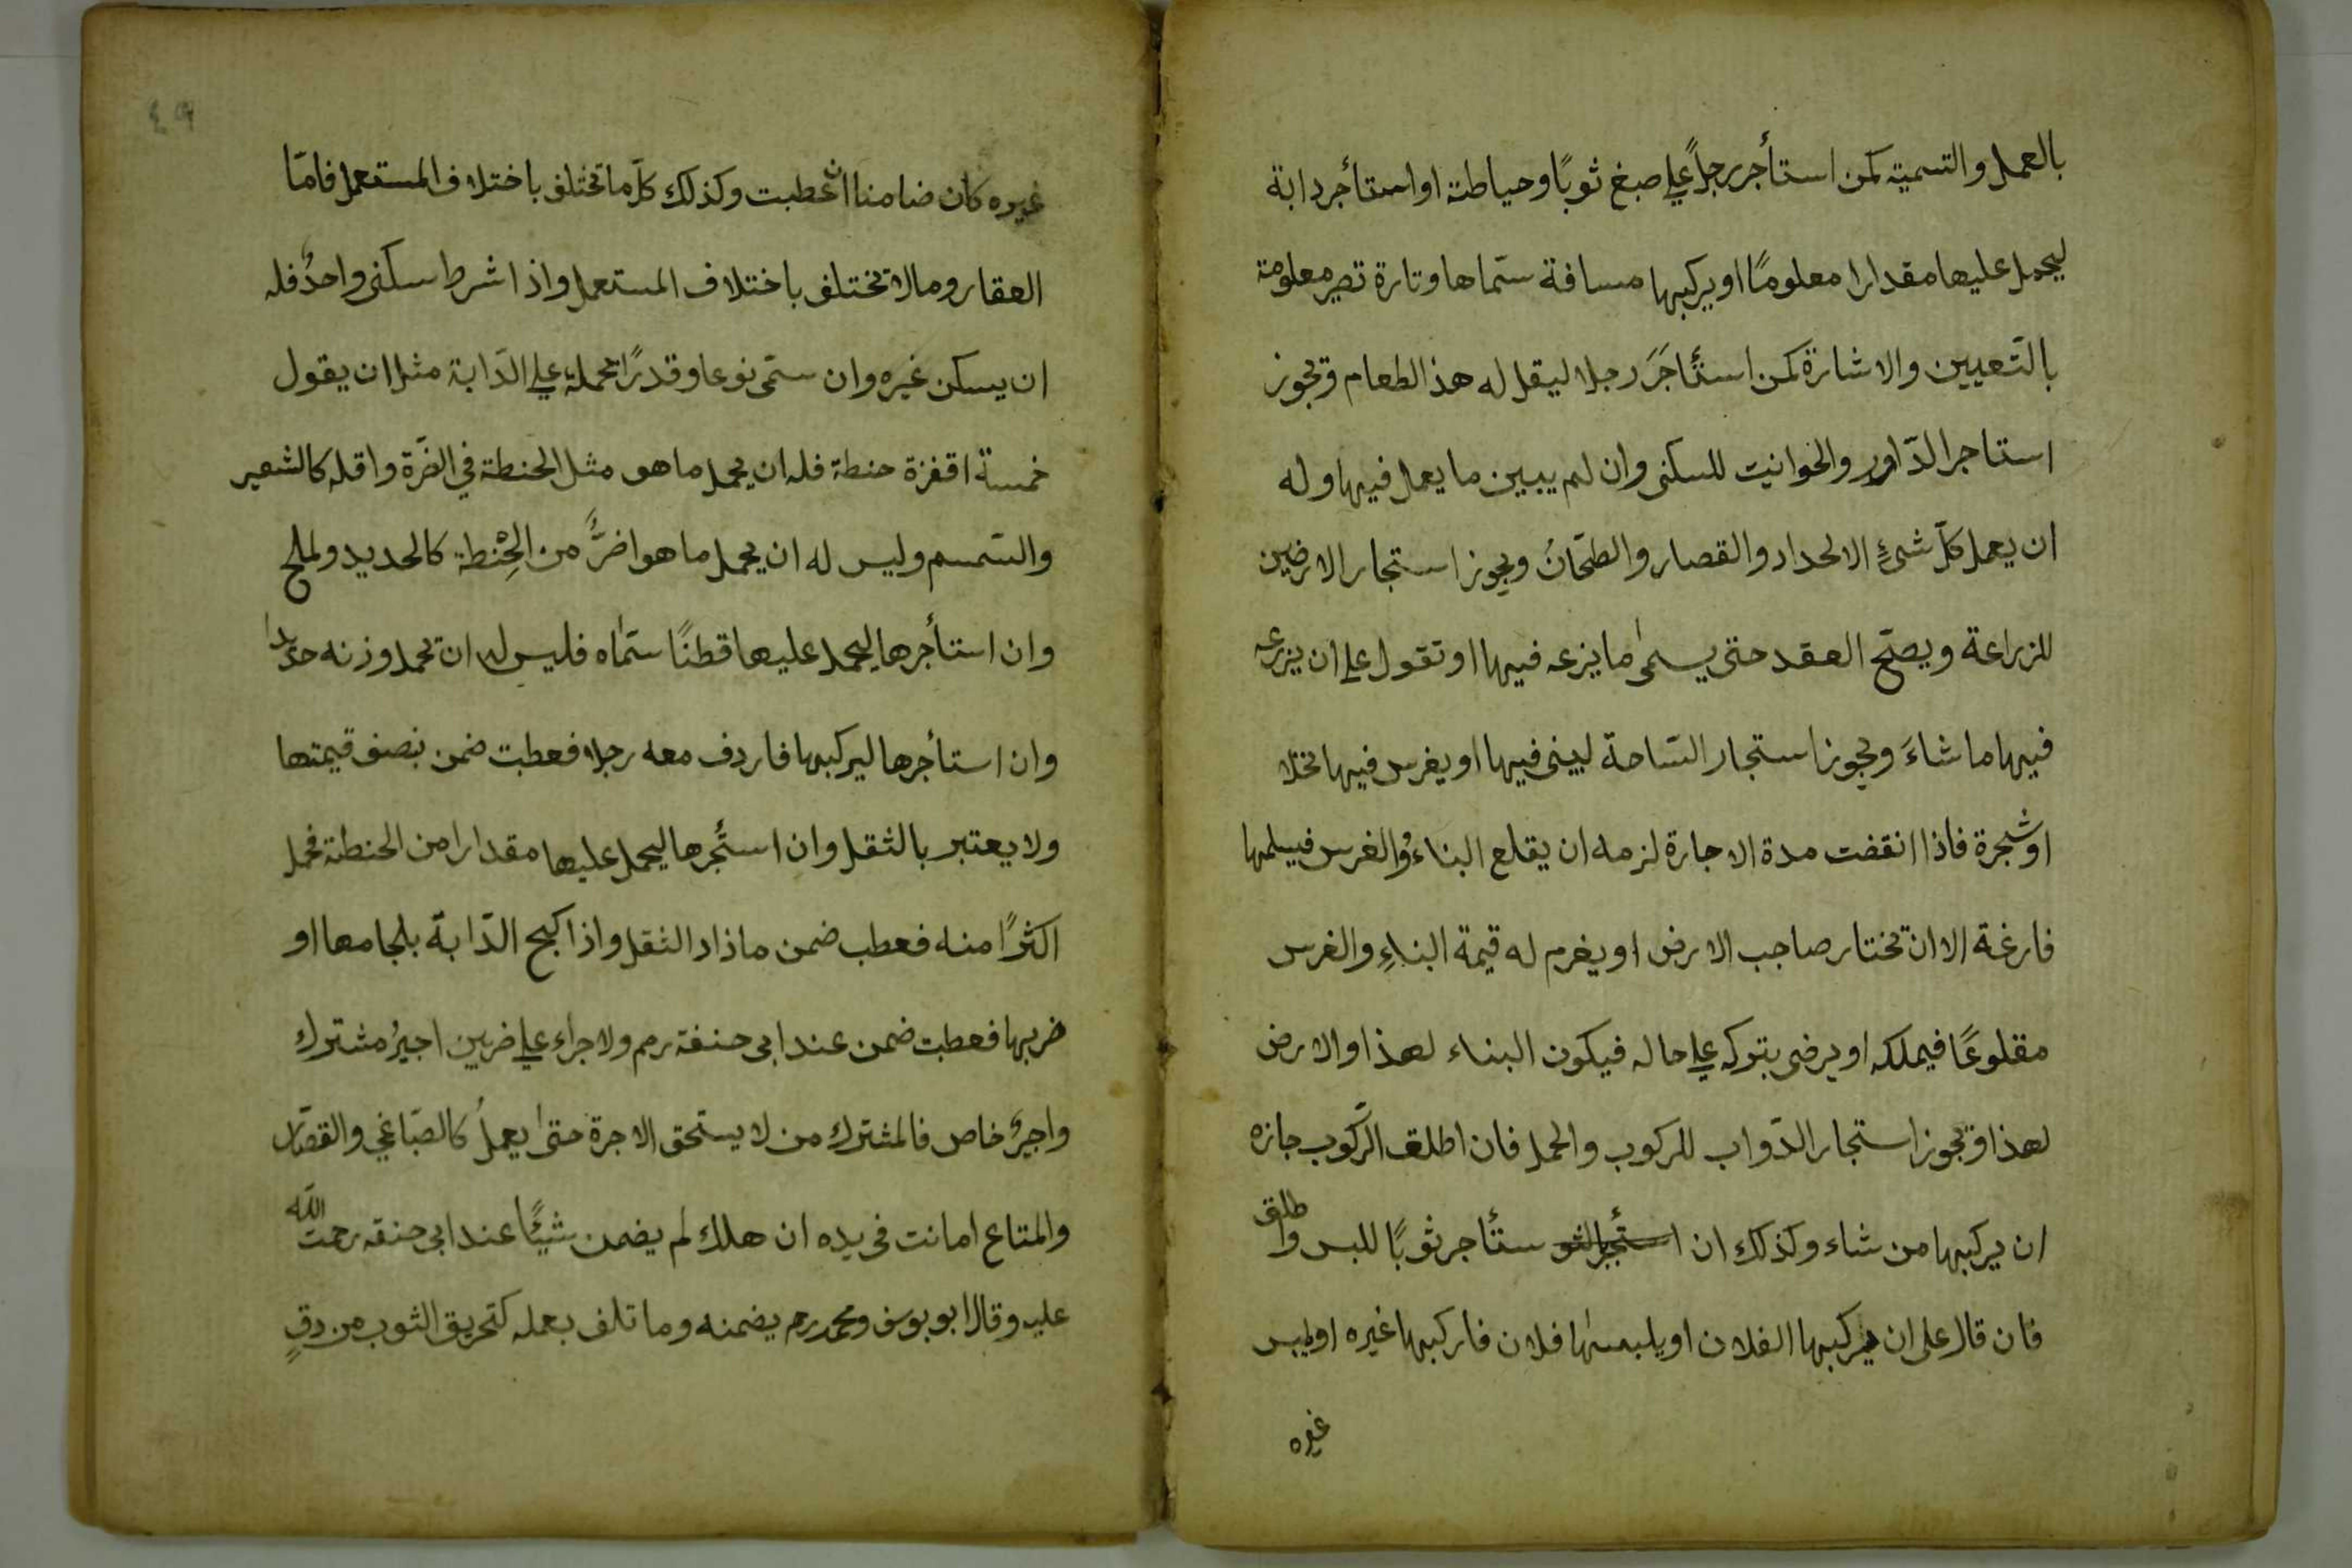 بالعمل والتسمية كمن استأجر رجلًا علي صبغ ثوبًا وحياطة او استأجر دابة
ليحمل عليها مقدارا معلومًا او يركبها مسافة سمّاها وتارة تصير معلومة
بالتّعيين والاشارة كمن استأجَرَ رجلا ليقل له هذ الطعام وتجوز
استاجر الدّاور والخوانيت للسكنى وان لم يبين ما يعمل فيها وله
ان يعمل كلّ شئٍ الالحداد والقصار والطحّانُ ويجوز استجار الارضين
للزراعة ويصحّ العقد حتى يسمىٰ ما يزعه فيها او تقول علي ان يزرعه
فيها ما شاءَ ويجوز استجار السّاحة ليبنى فيها او يغرس فيها نخلا
او شجرة فاذا انقضت مدة الاجارة لزمه ان يقلع البناء والغرس فيسلمها
فارغة الا ان تختار صاحب الارض او يغرم له قيمة البناءِ والغرس
مقلوعًا فيملكه او يرضى بتوكه علي حاله فيكون البناء لهذا والارض
لهذا وتجوز استجار الدّواب للركوب والحمل فان اطلق الرّكوب جازه
ان يركبها من شاء وكذلك ان ستأجر ثوبًا للبس واطلق
فان قال على ان يركبها الفلان او يلبسها فلان فاركبها غيره او يلبس
غيره
٤٩
غيره كان ضامنا ان عطبت وكذلك كلّ ما تختلف باختلاف المستعمل فامّا
العقار وما لا تختلف باختلاف المستعمل واذا شرط سكنى واحدٌ فله
ان يسكن غيره وان سمّى نوعا وقدرًا يحمله علي الدّابة مثل ان يقول
خمسة اقفزة حنطة فله ان يحمل ما هو مثل الحنطة في الضّرة واقله كالشعير
والسّمسم وليس له ان يحمل ما هو اضرُّ من الحِنْطة كالحديد ولملح
وان استأجرها ليحمل عليها قطنًا سمّاه فليس له ان تحمل وزنه حديدا
وان استأجرها ليركبها فاردف معه رجلا فعطبت ضمن بنصف قيمتها
ولا يعتبر بالثقل وان استئجرها ليحمل عليها مقدارا من الحنطة فحمل
اكثرًا منه فعطب ضمن ما ذاد الثقل واذا كبح الدّابة بلجامها او
ضربها فعطبت ضمن عند ابى حنفة رمم ولاجراء علي ضربين اجيرُ مشترك
واجيرٌ خاص فالمشترك من لا يستحق الاجرة حتىٰ يعملُ كالصبّاغي والقصّار
والمتاع امانت فى يده ان هلك لم يضمن شيئًا عند ابى حنفه رحمت اللّه
عليه وقال ابو يوسف ومحمد رمم يضمنه وما تلف بعمله كتحريق الثوب من دقٍ